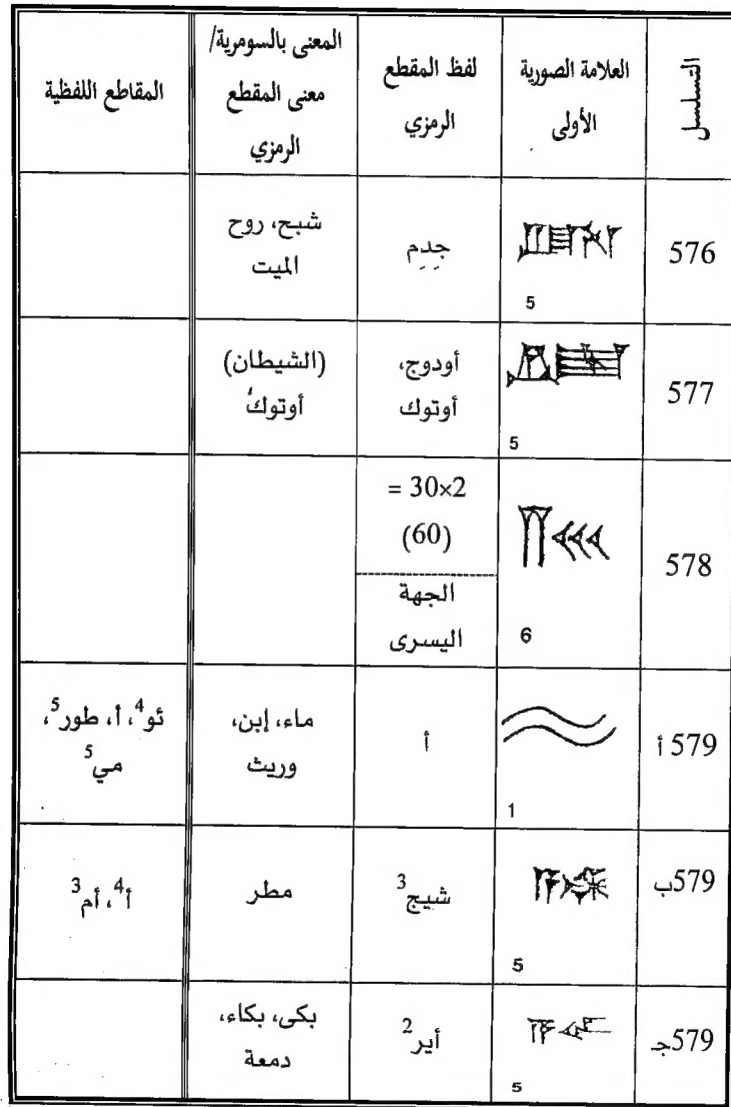 التسلسل
العلامة الصورية
الأولى
لفظ المقطع
الرمزي
المعنى بالسومرية/
معنى المقطع
الرمزي
المقاطع اللفظية
576
5
جِدِم
شبح، روح
الميت
577
5
أودوج،
أوتوك
(الشيطان)
أوتوكُ
578
6
= 30×2
(60)
الجهة
اليسرى
579 أ
1
أ
ماء، إبن،
وريث
ئو⁴، أ، طور⁵،
مي⁵
579ب
5
شيج³
مطر
أ⁴، أم³
579جـ
5
أير²
بكى، بكاء،
دمعة